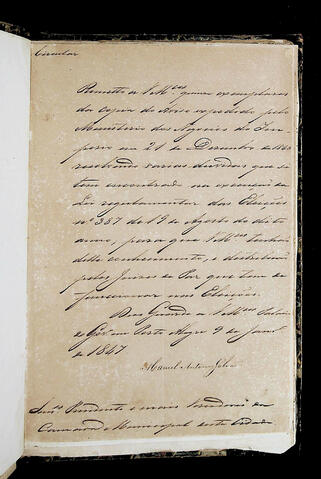 Circular
Remetto a V.Mces quinze exemplares
da copia do Aviso expedido pelo
Ministerio dos Negocios do Im-
perio em 21 de Dezembro de
resolvendo varias duvidas que se
tem encontrado na execução da
Lei regulamentar das Eleições
nº 387 de 19 de Agosto do dito
anno, para que V.Mces tenhão
delle conhecimento, e destribuão
pelos Juizes de Paz que tem de
funccionar nas Eleições.
Deos Guarde a V.Mces Palacio
do Gov. em Porto Alegre 9 de Janro
de 1847
Manoel Antonio Galvão
Snres Presidente e mais Vereadores da
Camara Municipal desta Cidade